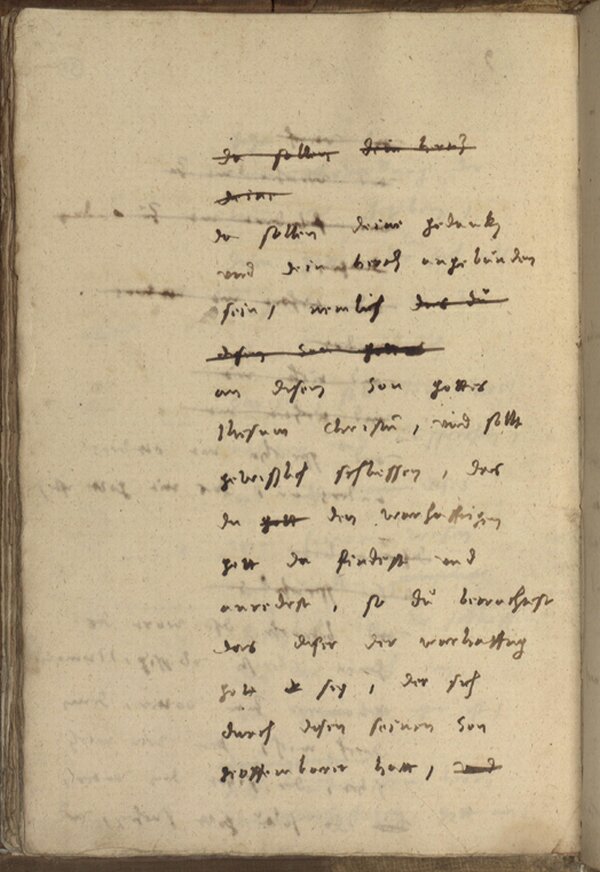 da sollen dein hertz
deine
da sollen deine gedank
und dein hertz angebunden
sein, nemlich das dü
disen son gottes
an disen son gottes
Ihesum Christü, und solt
gewißlich schliessen, das
du gott den warhafftigen
gott da findest und
anredest, so dü betrachtest
das diser der warhafftig
gott sey, der sich
durch disen seinen son
geoffenbaret hatt, und